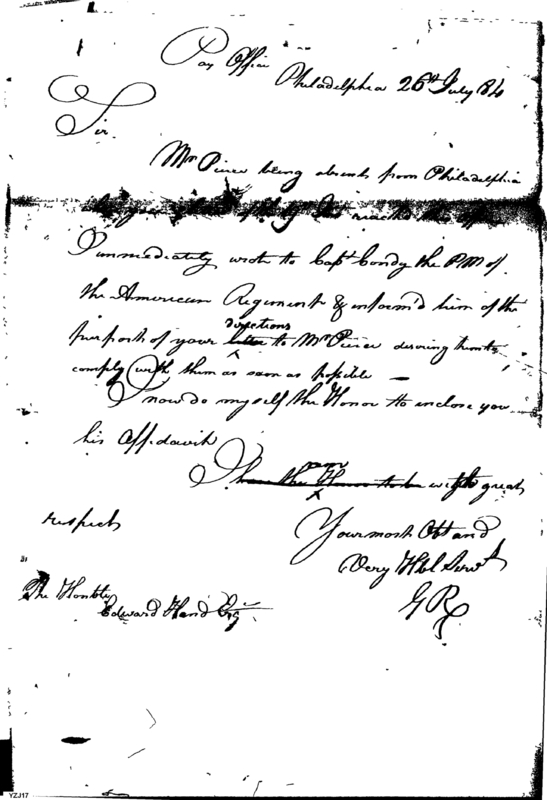 Pay Office
Philadelphia 26th July 84
Sir
Mr Pierce being absent from Philadelphia
when your reached this office
I immediately wrote to Capt Condy the PM of
the American Regiment & inform'd him of the
directions
purport of your letter to Mr Pierce desiring him to
comply with them as soon as possible —
I now do myself the Honor to enclose you
his Affidavit
am
I have the Honor to be with great
respect
Your most Obt and
Very Hbl Servt
The Honble
Edward Hand Esq
GR
YZJ17